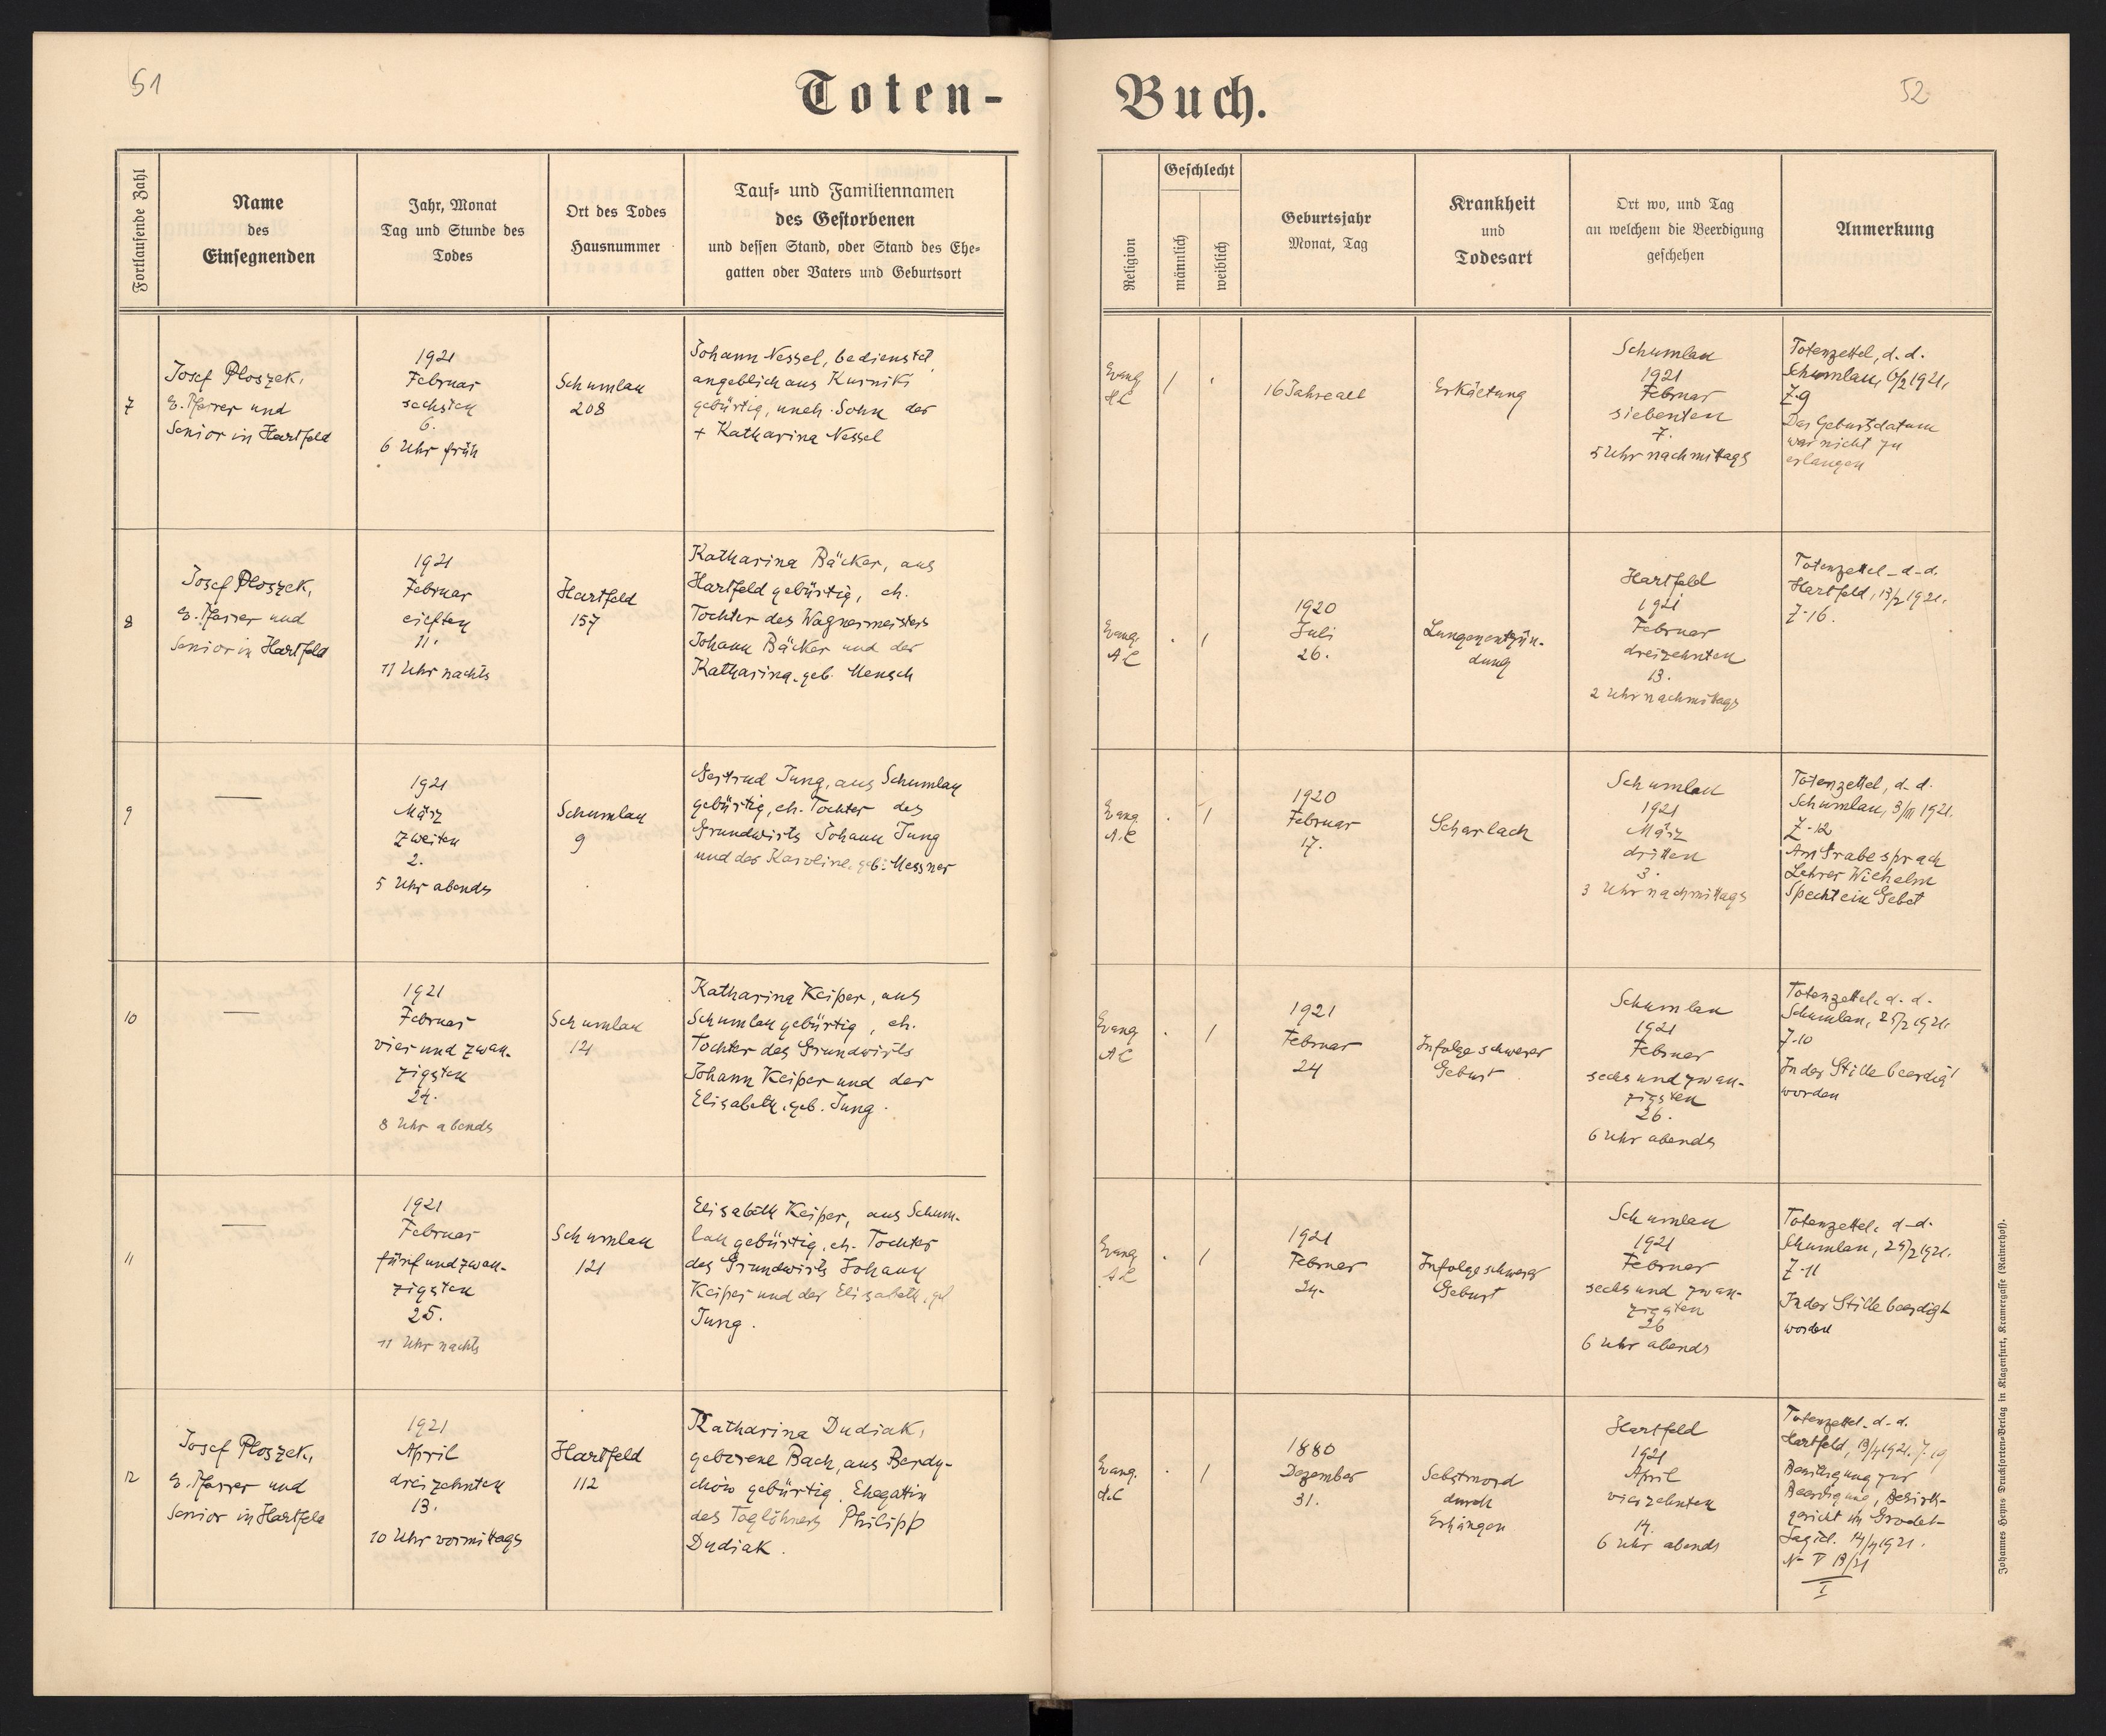 51
Toten-
Fortlaufende Zahl
Name
des
Einsegnenden
Jahr, Monat
Tag und Stunde des
Todes
Ort des Todes
Hausnummer
Tauf- und Familiennamen
des Gestorbenen
und dessen Stand, oder Stand des Ehe-
gatten oder Vaters und Geburtsort
7
Josef Ploszek,
E. Pfarrer und
Senior in Hartfeld
1921
Februar
sechsten
6.
6 Uhr früh
Schumlau
208
Johann Nessel, bedienstet
angeblich aus Kurniki
gebürtig, uneh. Sohn der
+ Katharina Nessel
8
Josef Ploszek,
E. Pfarrer und
Senior in Hartfeld
1921
Februar
elften
11.
11 Uhr nachts
Hartfeld
157
Katharina Bäcker, aus
Hartfeld gebürtig, eh.
Tochter des Wagnermeisters
Johann Bäcker und der
Katharina, geb. Mensch
9
—
1921
März
zweiten
2.
5 Uhr abends
Schumlau
9
Gertrud Jung, aus Schumlau
gebürtig, eh. Tochter des
Grundwirts Johann Jung
und der Karoline, geb. Messner
10
—
1921
Februar
vier und zwan-
zigsten
24.
8 Uhr abends
Schumlau
121
Katharina Keiper, aus
Schumlau gebürtig, eh.
Tochter des Grundwirts
Johann Keiper und der
Elisabeth, geb. Jung.
11
—
1921
Februar
fünf und zwan-
zigsten
25.
11 Uhr nachts
Schumlau
121
Elisabeth Keiper, aus Schum-
lau gebürtig, eh. Tochter
des Grundwirts Johann
Keiper und der Elisabeth, geb
Jung.
12
Josef Ploszek,
E. Pfarrer und
Senior in Hartfeld
1921
April
dreizehnten
13.
10 Uhr vormittags
Hartfeld
112
Katharina Dudiak,
geborene Bach, aus Berdy-
chów gebürtig. Ehegattin
des Taglöhners Philipp
Dudiak.
52
Buch.
Religion
Geschlecht
männlich
weiblich
Geburtsjahr
Monat, Tag
Krankheit
und
Todesart
Ort wo, und Tag
an welchem die Beerdigung
geschehen
Anmerkung
Evang
H.C
/
16 Jahre alt
Erkältung
Schumlau
1921
Februar
siebenten
7.
5 Uhr nachmittags
Totenzettel, d. d.
Schumlau, 6/2 1921,
Z-9
Das Geburtsdatum
war nicht zu
erlangen
Evang.
A C
. /
1920
Juli
26.
Lungenentzün-
dung
Hartfeld
1921
Februar
dreizehnten
13.
2 Uhr nachmittags
Totenzettel, d-d.
Hartfeld, 13/2 1921.
Z-16.
Evang
A.C
. /
1920
Februar
17.
Scharlach
Schumlau
1921
März
dritten
3.
3 Uhr nachmittags
Totenzettel, d-d.
Schumlau, 3/III 1921.
Z-12
Am Grabe sprach
Lehrer Wilhelm
Specht ein Gebet
Evang
A C
. /
1921
Februar
24
Infolge schwerer
Geburt
Schumlau
1921
Februar
sechs und zwan-
zigsten
26.
6 Uhr abends
Totenzettel, d. d.
Schumlau, 25/2 1921.
Z-10
In der Stille beerdigt
worden
Evang
A C
. /
1921
Februar
24.
Infolge schwerer
Geburt
Schumlau
1921
Februar
sechs und zwan-
zigsten
26
6 Uhr abends
Totenzettel, d-d.
Schumlau, 25/2 1921.
Z-11
In der Stille beerdigt
worden
Evang.
A.C
. /
1880
Dezember
31.
Selbstmord
durch
Erhängen
Hartfeld
1921
April
vierzehnten
14.
6 Uhr abends
Totenzettel, d-d.
Hartfeld, 13/4 1921. Z-19
Bewilligung zur
Beerdigung, Bezirk-
gericht in Grodek-
Jagiel. 14/4 1921.
N- V 19/21
I
Johannes Heyns Drucksorten-Verlag in Klagenfurt, Kramergasse (Rainerhof).